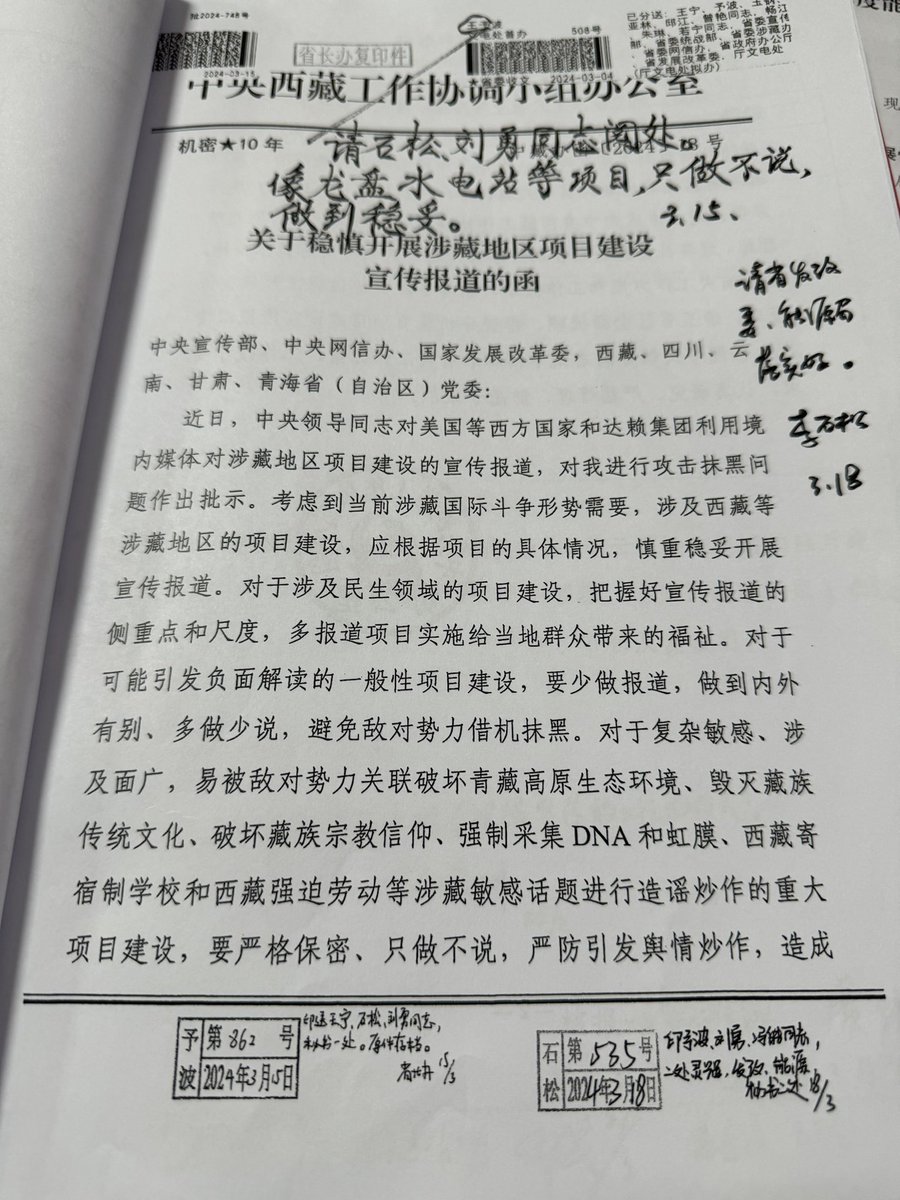 批2024-748号
2024-03-15
省长办复印件
508号
省委收文 2024-03-04
已分送：王宁、予波、玉
亚林、邱江、普艳同志，
朱琳、若宁同志，省委宣传
部、省委统战部、省委涉藏办
省委网信办、省政府办公厅
省发展改革委、
（厅文电处拟办）
中央西藏工作协调小组办公室
机密★10年
请石松、刘勇同志阅处。
像龙盘水电站等项目，只做不说，
做到稳妥。
3.15、
关于稳慎开展涉藏地区项目建设
宣传报道的函
请省发改
委、能源局
落实好。
李石松
3.18
中央宣传部、中央网信办、国家发展改革委，西藏、四川、云
南、甘肃、青海省（自治区）党委：
近日，中央领导同志对美国等西方国家和达赖集团利用境
内媒体对涉藏地区项目建设的宣传报道，对我进行攻击抹黑问
题作出批示。考虑到当前涉藏国际斗争形势需要，涉及西藏等
涉藏地区的项目建设，应根据项目的具体情况，慎重稳妥开展
宣传报道。对于涉及民生领域的项目建设，把握好宣传报道的
侧重点和尺度，多报道项目实施给当地群众带来的福祉。对于
可能引发负面解读的一般性项目建设，要少做报道，做到内外
有别、多做少说，避免敌对势力借机抹黑。对于复杂敏感、涉
及面广，易被敌对势力关联破坏青藏高原生态环境、毁灭藏族
传统文化、破坏藏族宗教信仰、强制采集 DNA 和虹膜、西藏寄
宿制学校和西藏强迫劳动等涉藏敏感话题进行造谣炒作的重大
项目建设，要严格保密、只做不说，严防引发舆情炒作，造成
予波 第862号
2024年3月15日
印送王宁、石松、刘勇同志，
秘书一处。原件存档。
15/3
石松 第535号
2024年3月18日
印予波、刘勇、同志，
二处、发改、能源
秘书二处 18/3